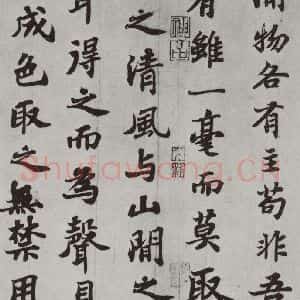 閒物各有主苟非吾
有雖一毫而莫取
之清風与山閒之
耳得之而為聲目
成色取之無禁用
Shufawang.CN